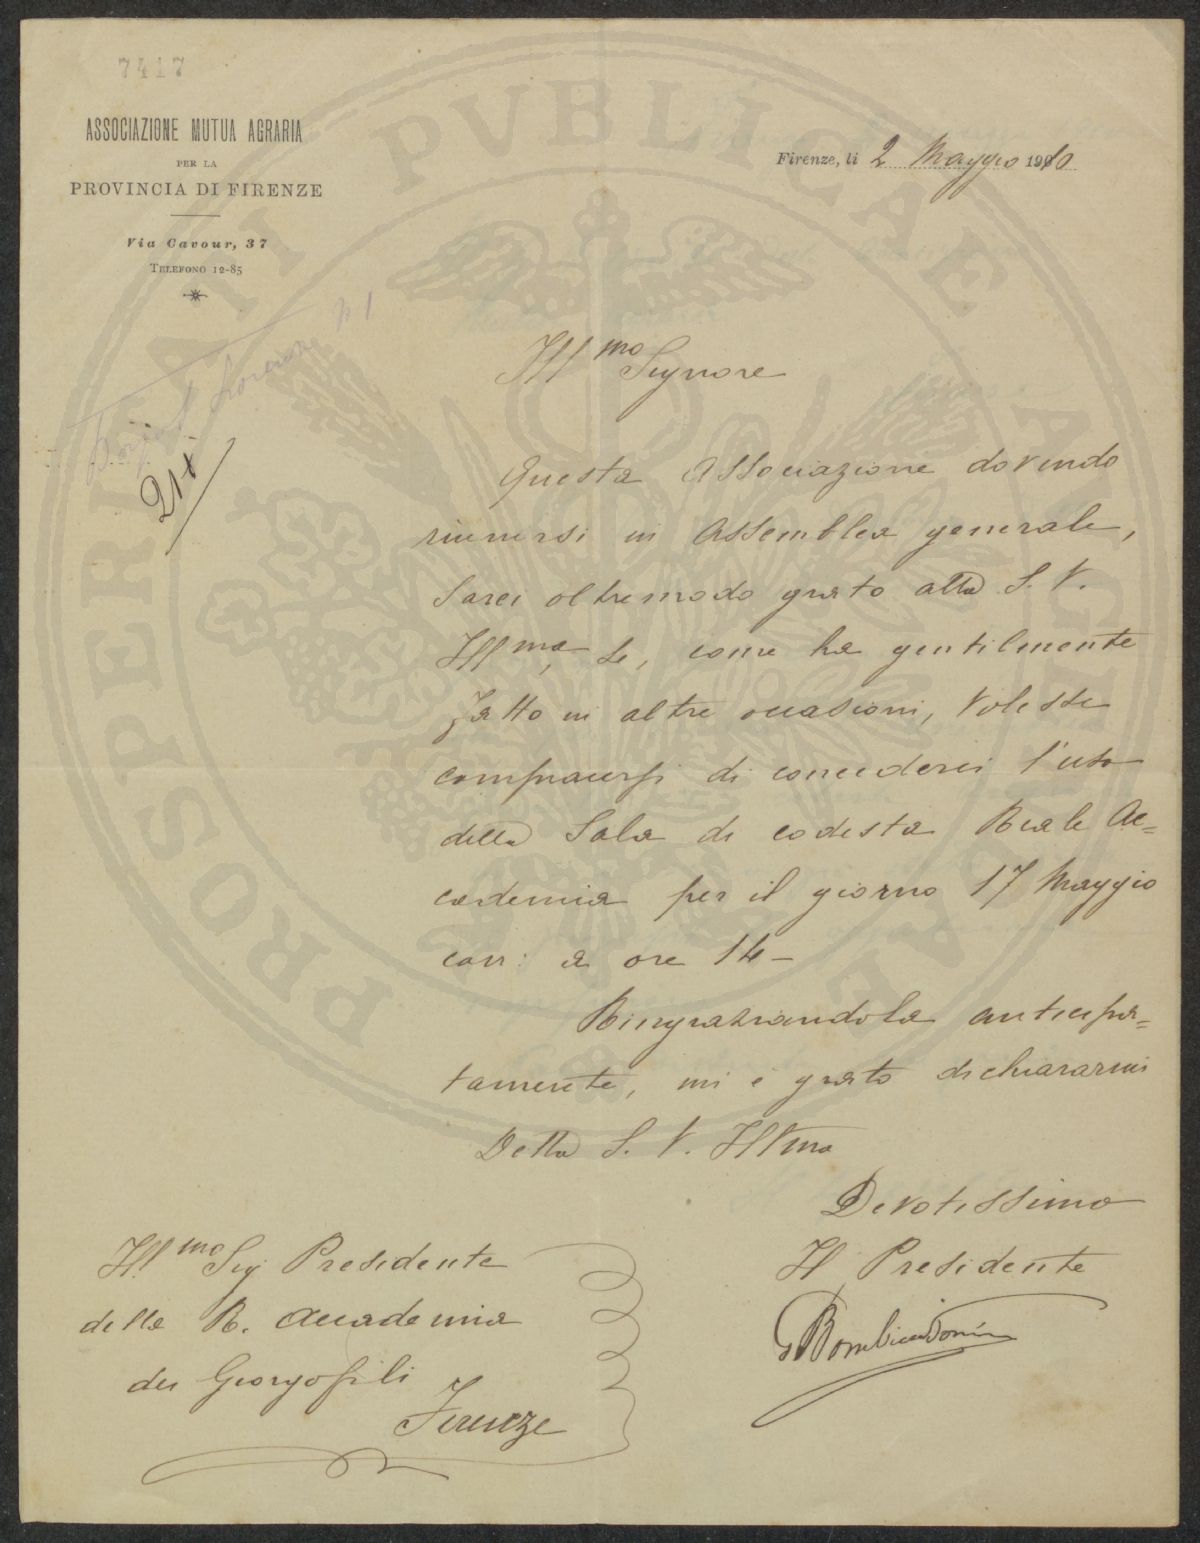 7417
ASSOCIAZIONE MUTUA AGRARIA
PER LA
PROVINCIA DI FIRENZE
Via Cavour, 37
TELEFONO 12-85
Firenze, li 2 Maggio 1910
Ill mo Signore
Questa Associazione dovendo
riunirsi in Assemblea generale,
sarei oltremodo grato alla S. V.
Ill ma, se, come ha gentilmente
fatto in altre occasioni, volesse
compiacersi di concederci l'uso
della Sala di codesta Reale Ac=
cademia per il giorno 17 Maggio
corr: a ore 14 -
Ringraziandola anticipa=
tamente, mi è grato dichiararmi
Della S. V. Ill ma
Devotissimo
Il Presidente
Ill. mo Sig Presidente
della R. Accademia
dei Georgofili
Firenze
PROSPERITATI PVBLICAE AVGENDAE